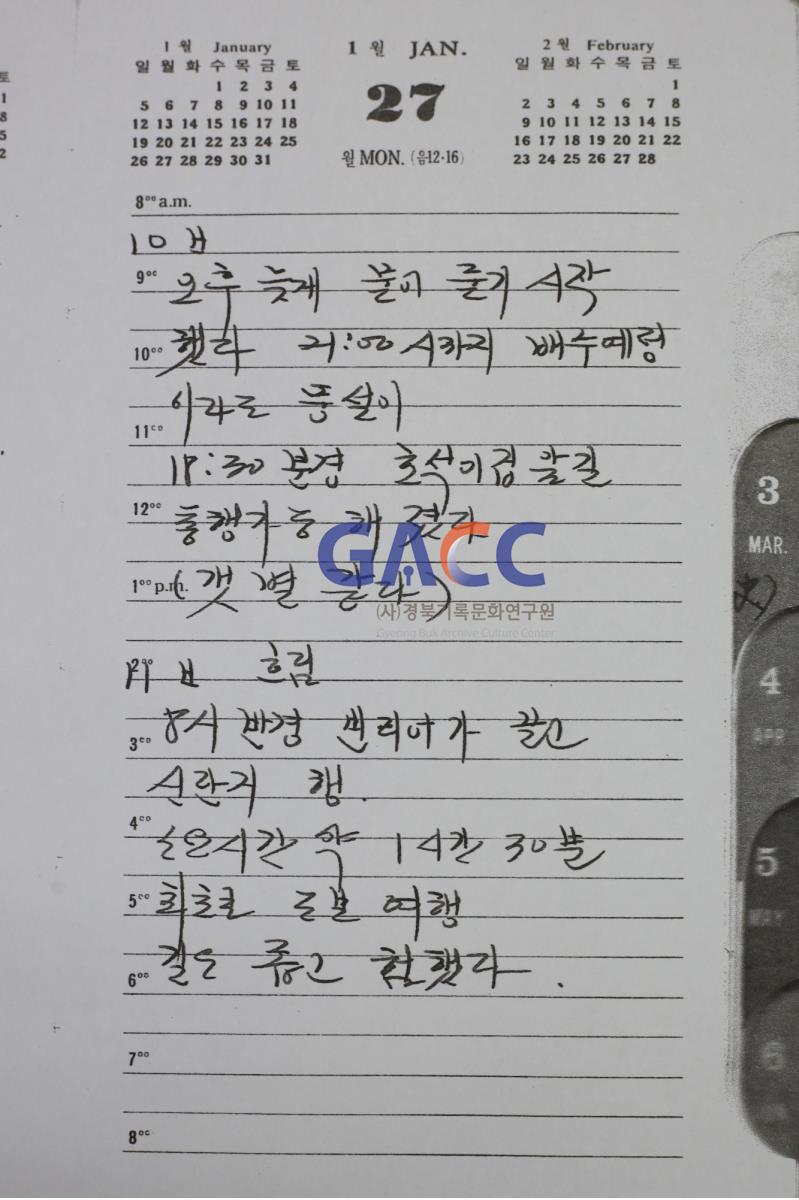 1월 January
일 월 화 수 목 금 토
1 2 3 4
5 6 7 8 9 10 11
12 13 14 15 16 17 18
19 20 21 22 23 24 25
26 27 28 29 30 31
1월 JAN.
27
월 MON. (음12·16)
2월 February
일 월 화 수 목 금 토
1
2 3 4 5 6 7 8
9 10 11 12 13 14 15
16 17 18 19 20 21 22
23 24 25 26 27 28
8⁰⁰ a.m.
10日
9⁰⁰ 오후 늦게 물이 줄기 시작
10⁰⁰ 했다 21:00시까지 배수예령
11⁰⁰ 이라는 풍설이
18:30 분경 호석이집 앞길
12⁰⁰ 통행가능 해 졌다
1⁰⁰ p.m. (갯벌 같다)
2⁰⁰ 日 흐림
3⁰⁰ 8시 반경 빈리어가 끌고
신탄지 행.
4⁰⁰ 시간 약 1시간 30분
5⁰⁰ 최초로 도보 여행
6⁰⁰ 길은 좁고 험했다.
7⁰⁰
8⁰⁰
GACC
(사)경북기록문화연구원
Gyeong Buk Archive Culture Center
3
MAR.
4
APR
5
MAY
6